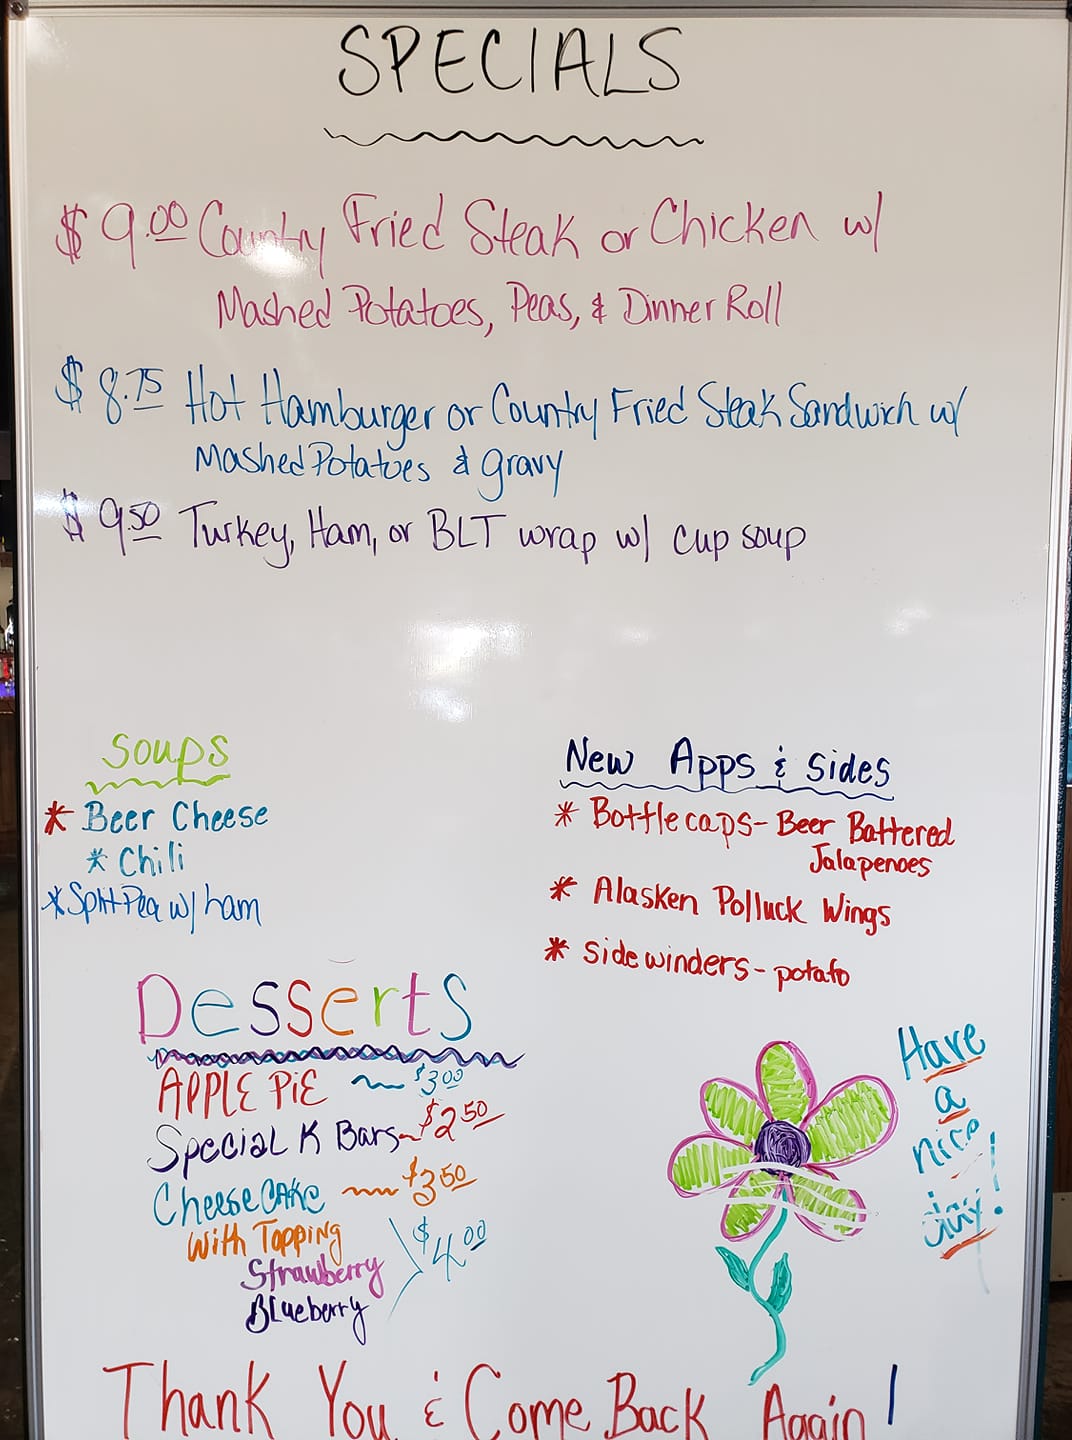 SPECIALS
$9.00 Country Fried Steak or Chicken w/
Mashed Potatoes, Peas, & Dinner Roll
$8.75 Hot Hamburger or Country Fried Steak Sandwich w/
Mashed Potatoes & gravy
$9.50 Turkey, Ham, or BLT wrap w/ cup soup
Soups
* Beer Cheese
* Chili
* Split Pea w/ ham
New Apps & sides
* Bottle caps - Beer Battered
Jalapenoes
* Alasken Polluck Wings
* side winders - potato
Desserts
APPLE PiE ~ $3.00
Special K Bars ~ $2.50
CheeseCAKe ~ $3.50
With Topping
Strawberry
Blueberry
$4.00
Have
a
nice
day!
Thank You & Come Back Again!